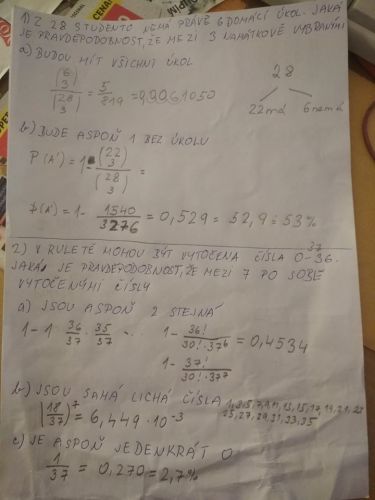 1) Z 28 STUDENTŮ NEMÁ PRÁVĚ 6 DOMÁCÍ ÚKOL. JAKÁ
JE PRAVDĚPODOBNOST, ŽE MEZI 3 NAMÁTKOVĚ VYBRANÝMI
a) BUDOU MÍT VŠICHNI ÚKOL
(6 3) / (28 3) = 5/819 = 0,0061050
28
22 má 6 nemá
b) BUDE ASPOŇ 1 BEZ ÚKOLU
P(A') = 1 - (22 3) / (28 3) =
P(A') = 1 - 1540/3276 = 0,529 = 52,9 = 53%
37
2) V RULETĚ MOHOU BÝT VYTOČENA ČÍSLA 0-36.
JAKÁ JE PRAVDĚPODOBNOST, ŽE MEZI 7 PO SOBĚ
VYTOČENÝMI ČÍSLY
a) JSOU ASPOŇ 2 STEJNÁ
1 - 1 · 36/37 · 35/37 ... 1 - 36!/30! · 37^6 = 0,4534
1 - 37!/30! · 37^7
b) JSOU SAMÁ LICHÁ ČÍSLA 1,3,5,7,9,11,13,15,17,19,21,23
(18/37)^7 = 6,449 · 10^-3 25,27,29,31,33,35
c) JE ASPOŇ JEDENKRÁT 0
1/37 = 0,270 = 2,7%